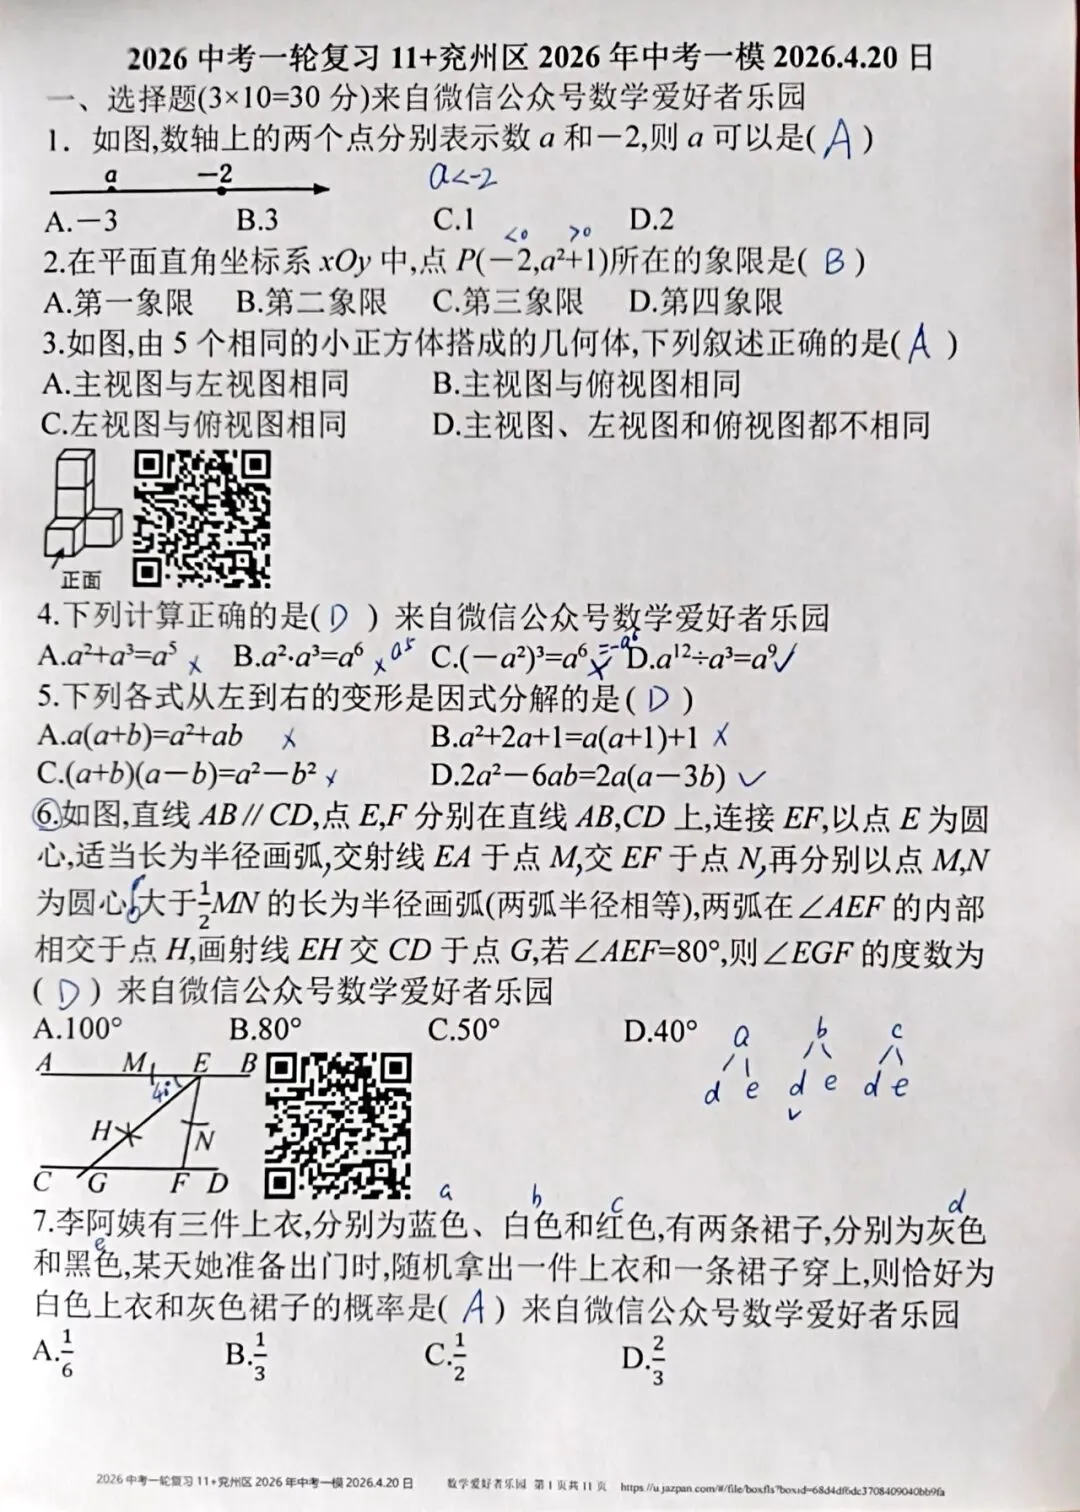 2026 中考一轮复习 11+兖州区 2026 年中考一模 2026.4.20 日
一、选择题(3×10=30 分)来自微信公众号数学爱好者乐园
1. 如图,数轴上的两个点分别表示数 a 和－2,则 a 可以是( A )
a －2 a<-2
A.－3 B.3 C.1 D.2
<0 >0
2.在平面直角坐标系 xOy 中,点 P(－2,a²+1)所在的象限是( B )
A.第一象限 B.第二象限 C.第三象限 D.第四象限
3.如图,由 5 个相同的小正方体搭成的几何体,下列叙述正确的是( A )
A.主视图与左视图相同 B.主视图与俯视图相同
C.左视图与俯视图相同 D.主视图、左视图和俯视图都不相同
正面
4.下列计算正确的是( D ) 来自微信公众号数学爱好者乐园
A.a²+a³=a⁵ × B.a²·a³=a⁶ × a⁵ C.(－a²)³=a⁶ × =-a⁶ D.a¹²÷a³=a⁹ ✓
5.下列各式从左到右的变形是因式分解的是( D )
A.a(a+b)=a²+ab × B.a²+2a+1=a(a+1)+1 ×
C.(a+b)(a－b)=a²－b² × D.2a²－6ab=2a(a－3b) ✓
6.如图,直线 AB∥CD,点 E,F 分别在直线 AB,CD 上,连接 EF,以点 E 为圆
心,适当长为半径画弧,交射线 EA 于点 M,交 EF 于点 N,再分别以点 M,N
为圆心,大于½MN 的长为半径画弧(两弧半径相等),两弧在∠AEF 的内部
相交于点 H,画射线 EH 交 CD 于点 G,若∠AEF=80°,则∠EGF 的度数为
( D ) 来自微信公众号数学爱好者乐园
A.100° B.80° C.50° D.40°
a b c
d e d e d e
✓
A M E B
40
H N
C G F D
a b c d
7.李阿姨有三件上衣,分别为蓝色、白色和红色,有两条裙子,分别为灰色
e
和黑色,某天她准备出门时,随机拿出一件上衣和一条裙子穿上,则恰好为
白色上衣和灰色裙子的概率是( A ) 来自微信公众号数学爱好者乐园
A.1/6 B.1/3 C.1/2 D.2/3
2026 中考一轮复习 11+兖州区 2026 年中考一模 2026.4.20 日 数学爱好者乐园 第 1 页共 11 页